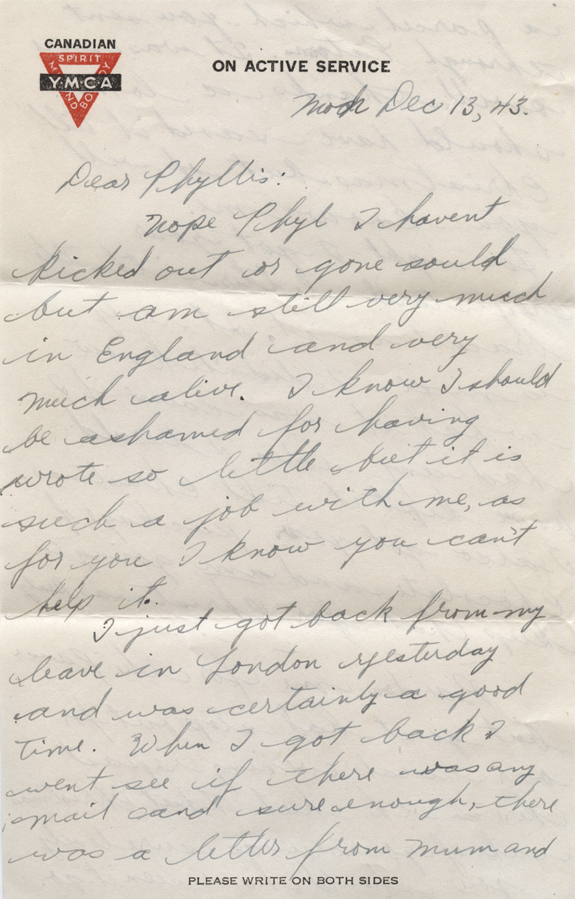 CANADIAN
SPIRIT
Y·M·C·A
MIND BODY
ON ACTIVE SERVICE
Dec 13, 43.
Dear Phyllis:
Nope Phyl I havent
kicked out or gone
but am still very much
in England and very
much alive. I know I should
be ashamed for having
wrote so little but it is
such a job with me, as
for you I know you can't
help it.
I just got back from my
leave in London yesterday
and was certainly a good
time. When I got back I
went see if there was any
mail and sure enough, there
was a letter from Mum and
PLEASE WRITE ON BOTH SIDES